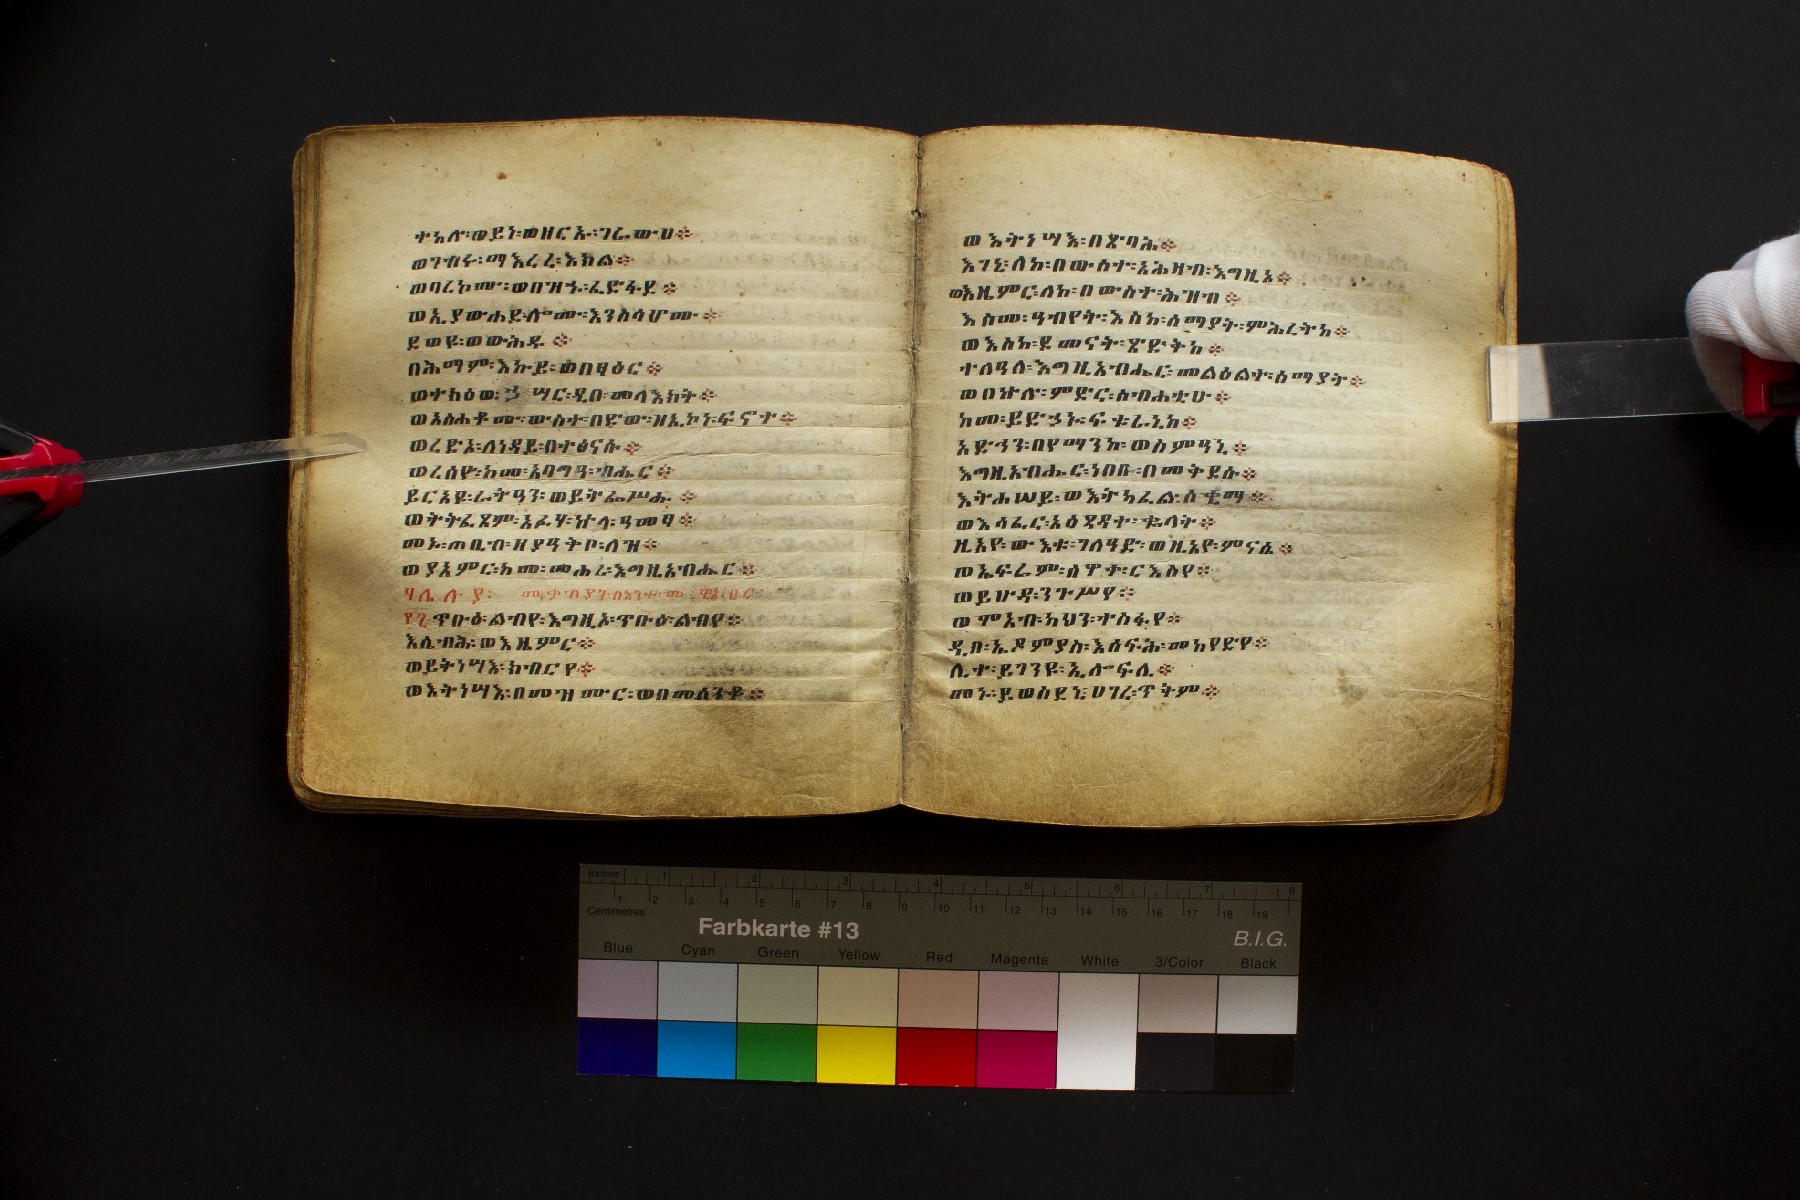 ተከሉ፡ወይነ፡ወዘርኡ፡ገራውህ፨
ወገብሩ፡ማእረረ፡እክል፨
ወባረኮሙ፡ወበዝኁ፡ፈድፋደ፨
ወኢያውሐደ፡ሎሙ፡እንስሳሆሙ፨
ደወዩ፡ወውሕዱ፨
በሕማም፡እኩይ፡ወበፃዕር፨
ወተክዕወ፡ኃሣር፡ዲበ፡መላእክት፨
ወአስሐቶሙ፡ውስተ፡በድው፡ዝኢኮነ፡ፍኖተ፨
ወረድኦ፡ለነዳይ፡በተፅናሱ፨
ወረሰዮ፡ከመ፡አባግዓ፡ብሔር፨
ይርአዩ፡ራትዓን፡ወይትፌሥሑ፨
ወትትፈፀም፡አፈሃ፡ኵላ፡ዓመፃ፨
መኑ፡ጠቢብ፡ዘያዓትቦ፡ለዝ፨
ወያአምር፡ከመ፡መሐሪ፡እግዚአብሔር፨
ሃሌ ሉ ያ፡
፻፯ጥቡዕ፡ልብየ፡እግዚኦ፡ጥቡዕ፡ልብየ፨
እሴብሕ፡ወእዜምር፨
ወይትነሣእ፡ክብርየ፨
ወእትነሣእ፡በመዝሙር፡ወበመሰንቆ፨
ወእትነሣእ፡በጽባሕ፨
እገኒ፡ለከ፡በውስተ፡አሕዛብ፡እግዚኦ፨
ወእዜምር፡ለከ፡በውስተ፡ሕዝብ፨
እስመ፡ዓብየት፡እስከ፡ሰማያት፡ምሕረትከ፨
ወእስከ፡ደመናት፡ጽድቅከ፨
ተለዓለ፡እግዚአብሔር፡መልዕልተ፡ሰማያት፨
ወበኵሉ፡ምድር፡ስብሐቲሁ፨
ከመ፡ይድኃኑ፡ፍቁራኒከ፨
አድኅን፡በየማንከ፡ወስምዓኒ፨
እግዚአብሔር፡ነበበ፡በመቅደሱ፨
እትሐሠይ፡ወእትካፈል፡ሰቂማ፨
ወእሳፈር፡አዕጻዳተ፡ቈላት፨
ዚአየ፡ውእቱ፡ገለዓድ፡ወዚአየ፡ምናሴ፨
ወኤፍሬም፡ፀዋቱ፡ርእስየ፨
ወይሁዳ፡ንጉሥየ፨
ወሞአብ፡ካህን፡ተስፋየ፨
ዲበ፡ኤዶምያስ፡እሰፍሕ፡መከየድየ፨
ሊተ፡ይገንዩ፡ኢሎፍሊ፨
መኑ፡ይወስደኒ፡ሀገረ፡ጥቅም፨
Inches 1 2 3 4 5 6 7 8
Centimetres 1 2 3 4 5 6 7 8 9 10 11 12 13 14 15 16 17 18 19
Farbkarte #13
B.I.G.
Blue Cyan Green Yellow Red Magenta White 3/Color Black